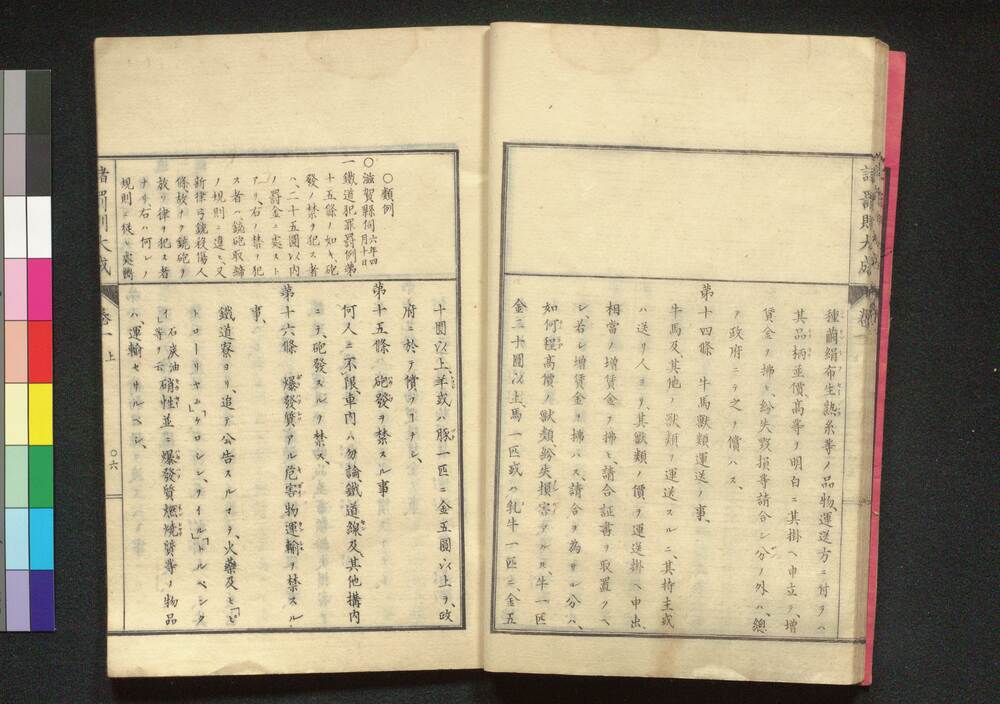 種繭絹布生熟糸等ノ品物、運送方ニ付テハ
其品柄並價、高等ヲ明白ニ其掛ヘ申立ラ、増
賃金ヲ拂ヒ、紛失毀損等請合シ分ノ外ハ、總
テ政府ニテ之ヲ償ハス、
第十四條 牛馬獸類運送ノ事、
牛馬及其他ノ獸類ヲ運送スルニ、其持主或
ハ送リ人ヨリ、其獸類ノ價ヲ運送掛ヘ申出、
相當ノ増賃金ヲ拂ヒ、請合証書ヲ取置クヘ
シ、若シ増賃金ヲ拂ハス、請合ヲ為サル分ハ、
如何程高價ノ獸類、紛失損害アルトモ、牛一匹
金二十圓以上、馬一匹或ハ乳牛一匹ニ、金五
諸罰則大成
卷一
○類例
○滋賀縣伺六年四月十日
一鐵道犯罪罰例第
十五條ノ如キ、砲
發ノ禁ヲ犯ス者
ハ、二十五圓以内
ノ罰金ニ處スト
アリ、右ノ禁ヲ犯
ス者ハ、銃砲取締
ノ規則ニ違ヒ、又
新律弓銃殺傷人
條、故ナク銃砲ヲ
放ツ律ヲ犯ス者
ナリ、右ハ何レノ
規則ニ從ヒ處斷
十圓以上、羊或ハ豚一匹ニ金五圓以上ヲ、政
府ニ於テ償フコナシ、
第十五條 砲發ヲ禁スル事
何人ニ不限車内ハ勿論鐵道線及其他搆内
ニテ砲發スルヲ禁ス、
第十六條 爆發質アル危害物運輸ヲ禁スル
事、
鐵道寮ヨリ、追テ公告スルマテ、火藥及ヒ「ピ
トローリヤム」「ケロシン、ヲイル」「トルペンタ
イン」等ヲ云石炭油硝性並ニ爆發質燃燒質等ノ物品
ハ、運輸セサルヘシ、
諸罰則大成
卷一 上
○六